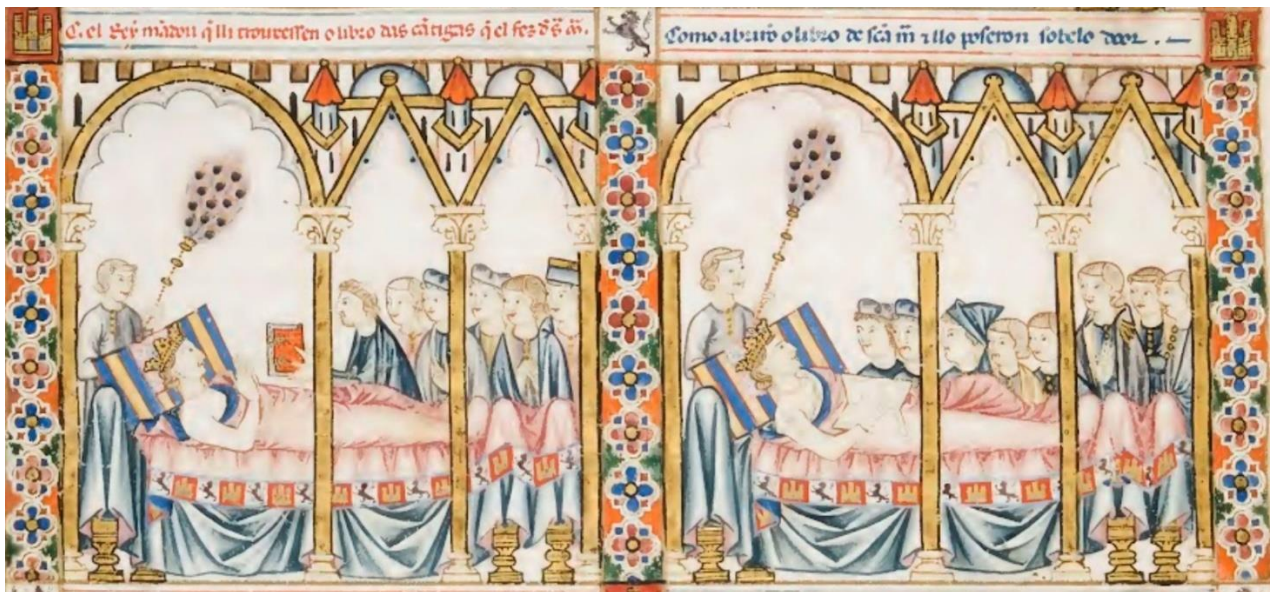 C. el Rey mãdou q̃ lli trouxessen o libro das cãtigas q̃ el fez d'sã m̃.
Como abrirõ o libro de scã m̃ ⁊ llo poseron sobelo door .